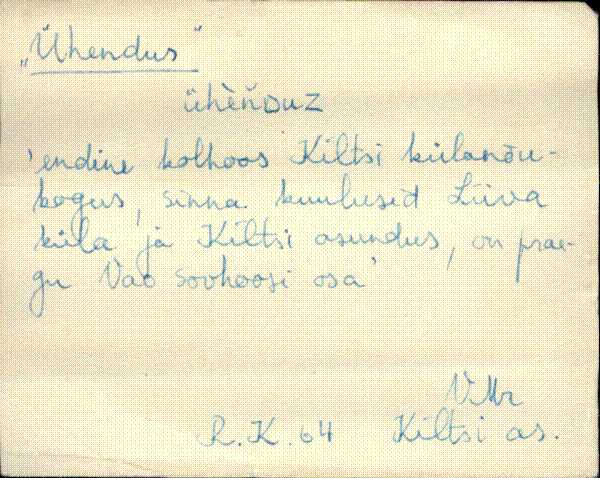 „Ühendus"
ühèǹᴅuz
'endine kolhoos Kiltsi külanõu-
kogus, sinna kuulusid Liiva
küla ja Kiltsi asundus, on prae-
gu Vao sovhoosi osa'
VMr
R.K. 64 Kiltsi as.